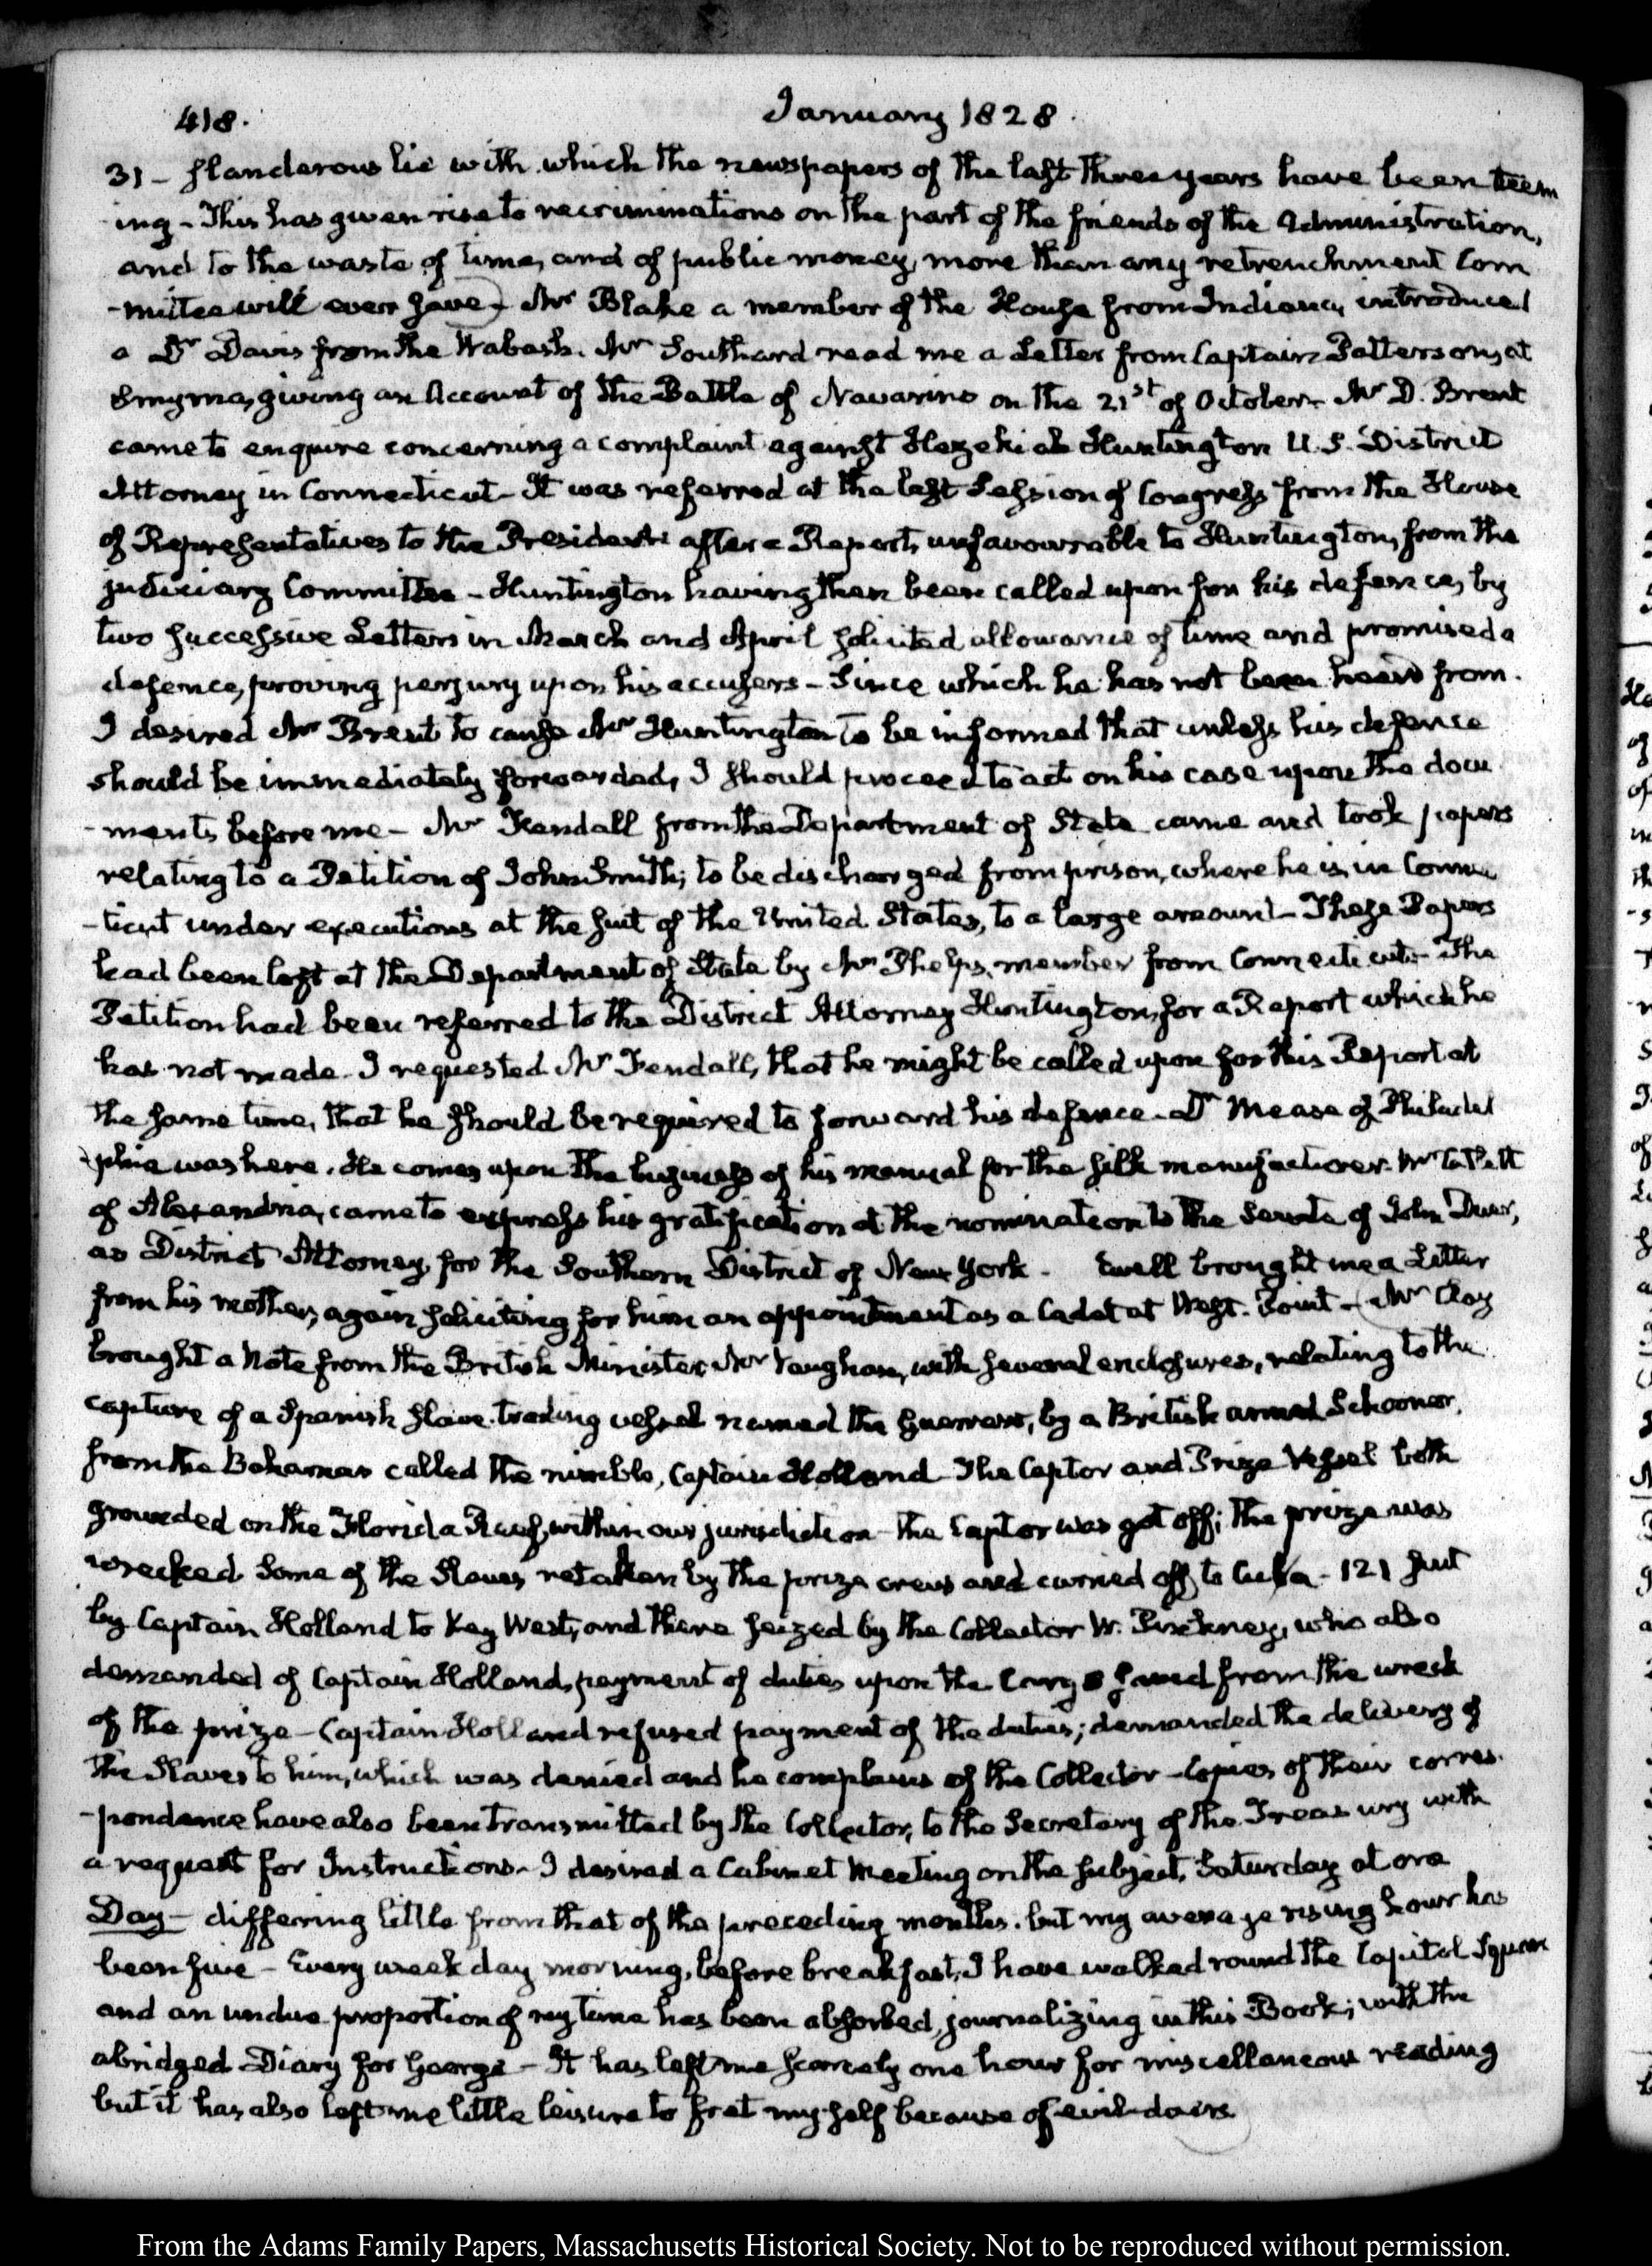 418.
January 1828.
31 - slanderous lie with which the newspapers of the last three years have been teem
ing - This has given rise to recriminations on the part of the friends of the Administration,
and to the waste of time, and of public money, more than any retrenchment Com
-mittee will ever save - Mr Blake a member of the House from Indiana, introduced
a Dr Davis from the Wabash. Mr Southard read me a Letter from Captain Patterson, at
Smyrna, giving an Account of the Battle of Navarino on the 21st of October - Mr D. Brent
came to enquire concerning a complaint against Hezekiah Huntington U.S. District
Attorney in Connecticut - It was referred at the last Session of Congress from the House
of Representatives to the President after a Report, unfavourable to Huntington, from the
judiciary Committee - Huntington having then been called upon for his defence, by
two successive Letters in March and April solicited allowance of time and promised a
defence, proving perjury upon his accusers - Since which he has not been heard from.
I desired Mr Brent to cause Mr Huntington to be informed that unless his defence
should be immediately forwarded, I should proceed to act on his case upon the docu
-ments before me - Mr Kendall from the Department of State came and took papers
relating to a Petition of John Smith; to be discharged from prison, where he is, in Connec
-ticut under executions at the suit of the United States, to a large amount - These Papers
had been left at the Department of State by Mr Phelps, member from Connecticut - The
Petition had been referred to the District Attorney Huntington, for a Report which he
has not made. I requested Mr Kendall, that he might be called upon for this Report at
the same time, that he should be required to forward his defence - Dr Mease of Philadel
-phia was here. He comes upon the business of his manual for the silk manufacturer. Mr
of Alexandria, came to express his gratification at the nomination to the Senate of John Duer,
as District Attorney for the Southern District of New York - Ewell brought me a Letter
from his mother, again soliciting for him an appointment as a Cadet at West-Point - Mr Clay
brought a Note from the British Minister, Mr Vaughan, with several enclosures, relating to the
capture of a Spanish slave-trading vessel named the Guerrero, by a British armed Schooner,
from the Bahamas called the nimble, Captain Holland - The Captor and Prize Vessel both
grounded on the Florida Reef, within our jurisdiction - the Captor was got off; the prize was
wrecked some of the Slaves retaken by the prize crews and carried off to Cuba - 121 sent
by Captain Holland to Key West, and there seized by the Collector W. Pinkney, who also
demanded of Captain Holland, payment of duties upon the Cargo saved from the wreck
of the prize - Captain Holland refused payment of the duties; demanded the delivery of
the Slaves to him, which was denied and he complains of the Collector - Copies of their corres-
-pondence have also been transmitted by the Collector, to the Secretary of the Treasury with
a request for Instructions - I desired a Cabinet Meeting on the subject, Saturday at one
Day - differing little from that of the preceding months. but my average rising hour has
been five - Every week day morning, before breakfast, I have walked round the Capitol Square
and an undue proportion of my time has been absorbed, journalizing in this Book; with the
abridged Diary for George - It has left me scarcely one hour for miscellaneous reading
but it has also left me little leisure to fret my-self because of evil-doers.
From the Adams Family Papers, Massachusetts Historical Society. Not to be reproduced without permission.